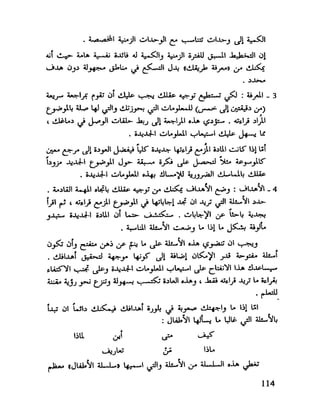 الكمية إلى وحدات تتناسب مع الوحدات الزمنية المخصصة .
إن التخطيط المسبق للفترة الزمنية والكمية له فائدة نفسية هامة حيث أنه
يمكنك من «معرفة طريقك» بدل التسكع في مناطق مجهولة دون هدف
محدد .
3 ـ المعرفة : لكي تستطيع توجيه عقلك يجب عليك أن تقوم بمراجعة سريعة
(من دقيقتين إلى خمس) للمعلومات التي بحوزتك والتي لها صلة بالموضوع
المراد قراءته . ستؤدي هذه المراجعة إلى ربط حلقات الوصل في دماغك ،
مما يسهل عمل استيعاب المعلومات الجديدة .
أما إذا كانت المادة المزمع قراءتها جديدة كلياً فيفضل العودة إلى مرجع معين
كالموسوعة مثلاً لتحصل على فكرة مسبقة حول الموضوع الجديد مزوداً
عقلك بالمماسك الضرورية للإمساك بهذه المعلومات الجديدة .
4 ـ الأهداف : وضع الأهداف يمكنك من توجيه عقلك باتجاه المهمة القادمة .
حدد الأسئلة التي تريد أن تجد إجاباتها في الموضوع المزمع قراءته ، ثم اقرأ
بعدئذ باحثاً عن الإجابات . ستكتشف حتماً أن المادة الجديدة ستبدو
مألوفة بشكل ما إذا ما وضعت الأسئلة المناسبة .
ويجب أن تنضوي هذه الأسئلة على ما ينم عن ذهن متفتح وأن تكون
أسئلة مفتوحة قدر الإمكان إضافة إلى كونها موجهة لتحقيق أهدافك .
سيساعدك هذا الانفتاح على استيعاب المعلومات الجديدة وعلى تجنب الاكتفاء
بقراءة ما تريد قراءته فقط ، وهذه العادة تكتسب بسهولة وتنزع نحو رؤية منقة
للعالم .
أما إذا ما واجهتك صعوبة في بلورة أهدافك فيمكنك دائماً أن تبدأ
بالأسئلة التي غالباً ما يسألها الأطفال :
كيف متى أين لماذا
ماذا مَنْ تعاريف
تغطي هذه السلسلة من الأسئلة والتي اسميها «سلسلة الأطفال» معظم
114